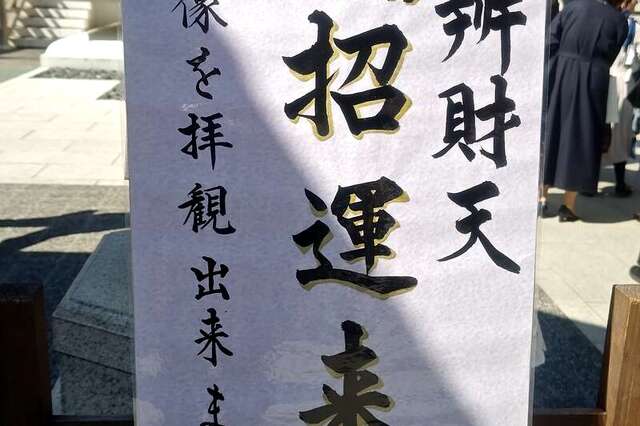 辨財天
招運来
像を拝観出来ま